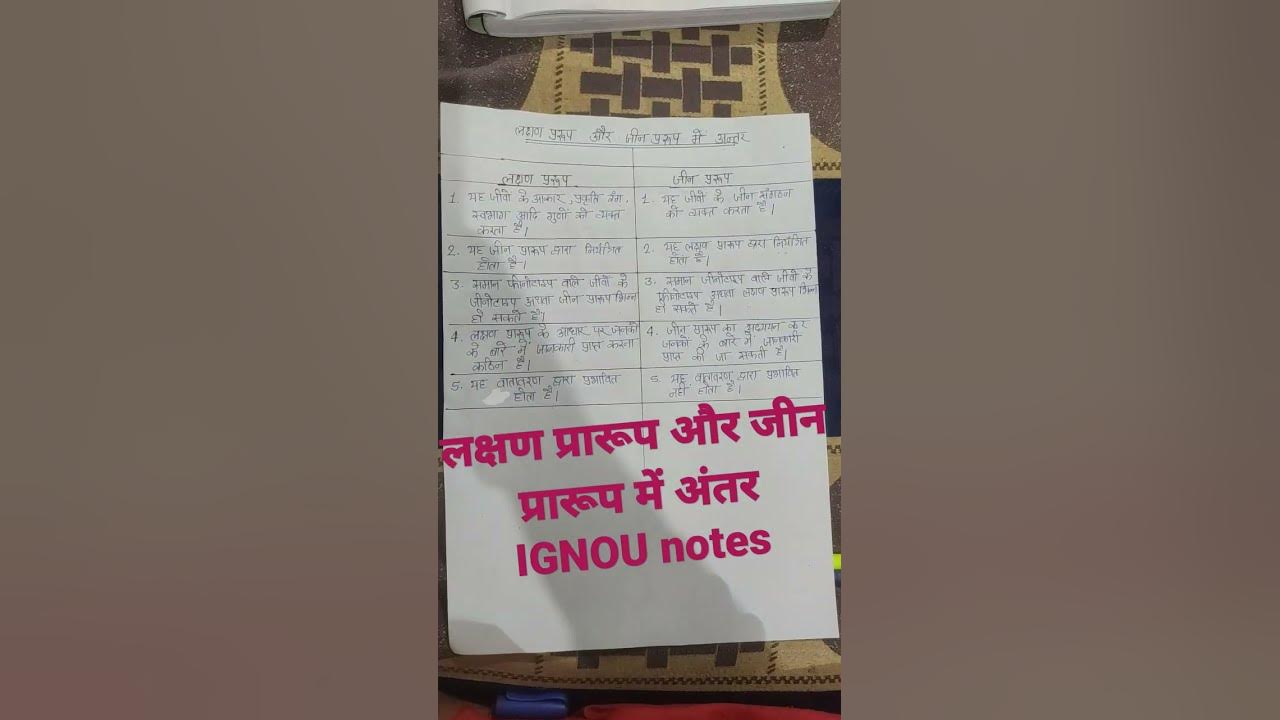 लक्षण प्ररूप और जीन प्ररूप में अन्तर
लक्षण प्ररूप
जीन प्ररूप
1. यह जीवों के आकार, प्रकृति रंग,
स्वभाग आदि गुणों को व्यक्त
करता है।
1. यह जीवों के जीन संगठन
को व्यक्त करता है।
2. यह जीन प्रारूप द्वारा नियंत्रित
होता है।
2. यह लक्षण प्रारूप द्वारा नियंत्रित
होता है।
3. समान फीनोटाइप वाले जीवों के
जीनोटाइप अथवा जीन प्रारूप भिन्न
हो सकते हैं।
3. समान जीनोटाइप वाले जीवों के
फ्रीनोटाइप अथवा लक्षण प्रारूप भिन्न
हो सकते हैं।
4. लक्षण प्रारूप के आधार पर जनकों
के बारे में जानकारी प्राप्त करना
कठिन है।
4. जीन प्रारूप का अध्ययन कर
जनकों के बारे में जानकारी
प्राप्त की जा सकती है।
5. यह वातावरण द्वारा प्रभावित
होता है।
5. यह वातावरण द्वारा प्रभावित
नहीं होता है।
लक्षण प्रारूप और जीन
प्रारूप में अंतर
IGNOU notes